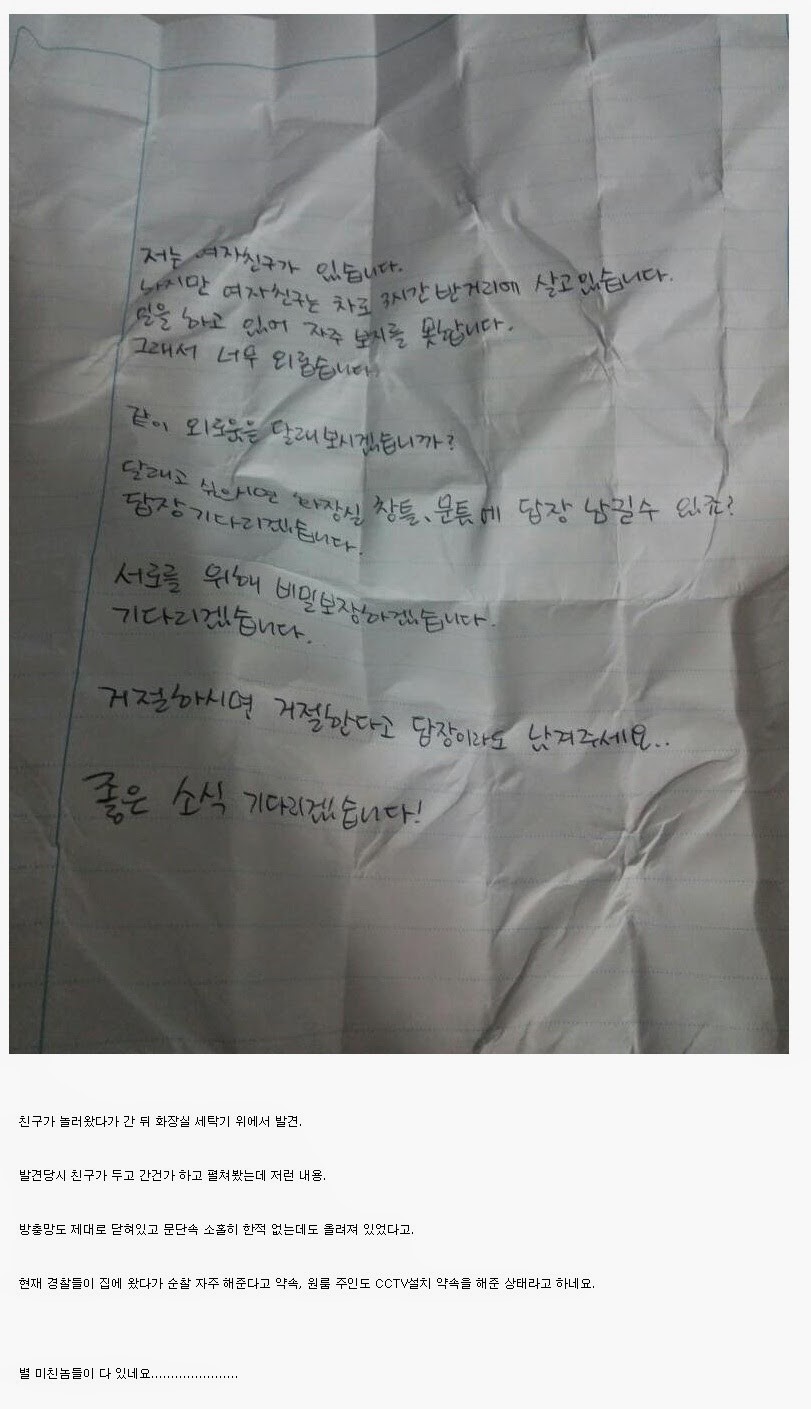 저는 여자친구가 있습니다.
하지만 여자친구는 차로 3시간 반거리에 살고있습니다.
일을 하고 있어 자주 보지를 못합니다.
그래서 너무 외롭습니다.
같이 외로움을 달래보시겠습니까?
달래고 싶으시면 화장실 창틀、문틈에 답장 남길수 있죠?
답장 기다리겠습니다.
서로를 위해 비밀보장하겠습니다.
기다리겠습니다.
거절하시면 거절한다고 답장이라도 남겨주세요..
좋은 소식 기다리겠습니다!
친구가 놀러왔다가 간 뒤 화장실 세탁기 위에서 발견.
발견당시 친구가 두고 간건가 하고 펼쳐봤는데 저런 내용.
방충망도 제대로 닫혀있고 문단속 소홀히 한적 없는데도 올려져 있었다고.
현재 경찰들이 집에 왔다가 순찰 자주 해준다고 약속, 원룸 주인도 CCTV설치 약속을 해준 상태라고 하네요.
별 미친놈들이 다 있네요......................